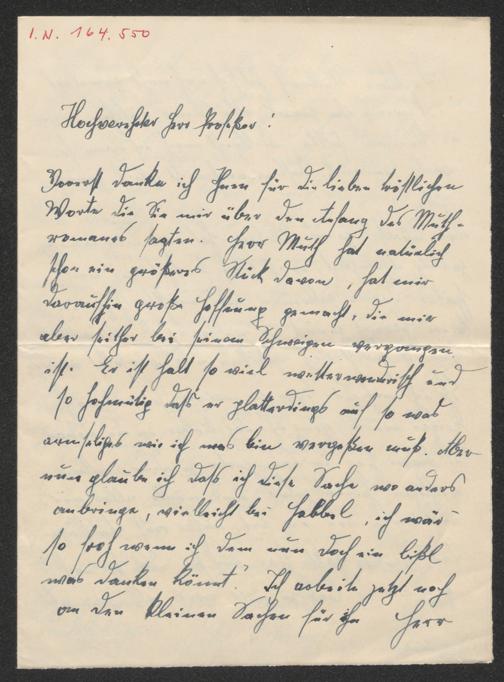 I.N. 164.550
Hochverehrter Herr Professor!
Vorerst danke ich Ihnen für die lieben tröstlichen
Worte die Sie mir über den Anfang des Muth-
romanes sagten. Herr Muth hat natürlich
schon ein größeres Stück davon, hat mir
daraufhin große Hoffnung gemacht, die mir
aber seither bei seinem Schweigen vergangen
ist. Er ist halt so viel wetterwendrisch und
so hochmütig dass er platterdings auf so was
armseliges wie ich was bin vergeßen muß. Aber
nun glaube ich dass ich diese Sache wo anders
anbringe, vielleicht bei Habbel, ich wär
so froh wenn ich dem nun doch ein bißl
was danken könnt! Ich arbeite jetzt noch
an den kleinen Sachen für ihn Herr